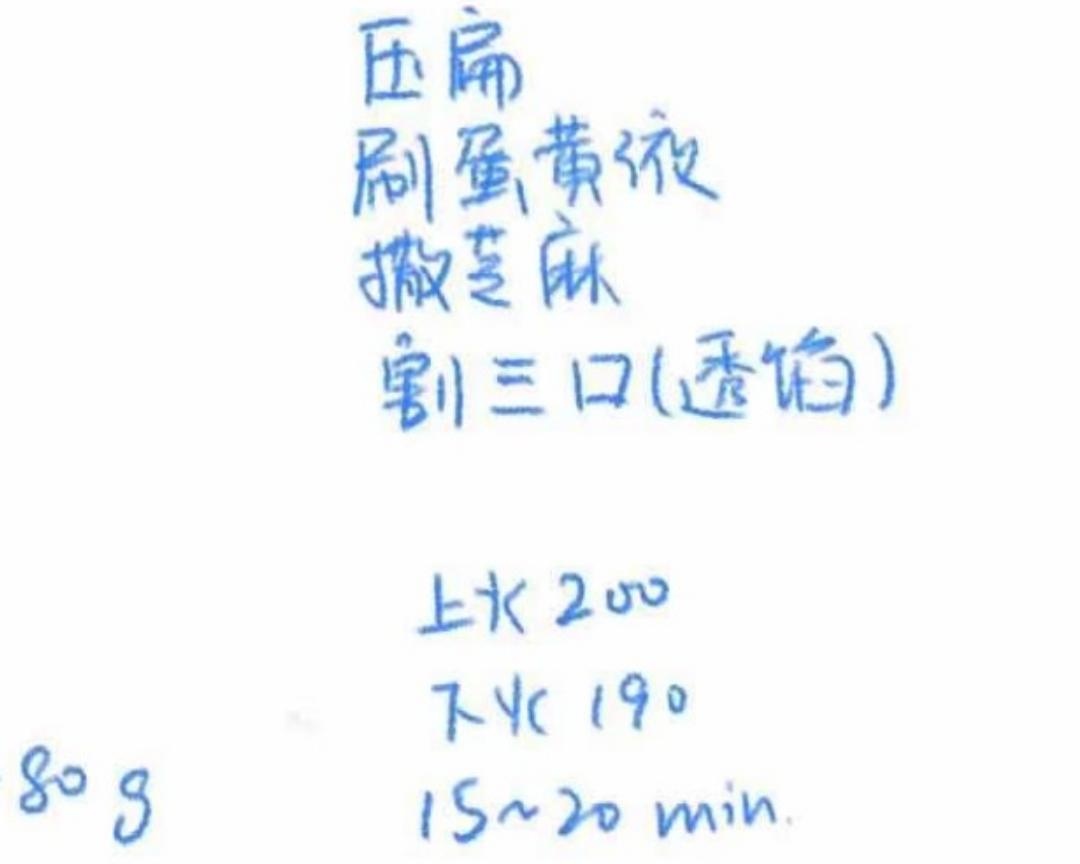 压扁
刷蛋黄液
撒芝麻
割三口(透馅)
上火200
下火190
80g
15~20min.